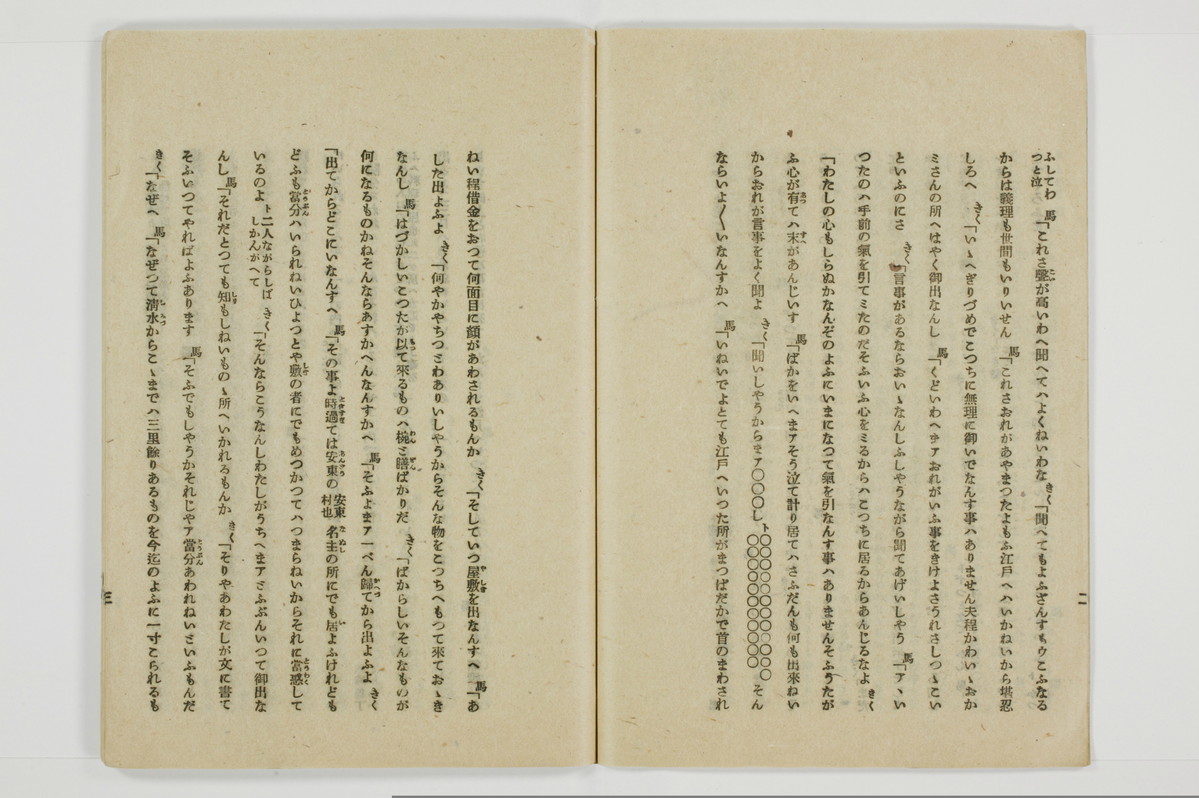 ふしてわつと泣 馬「これさ聲が高いわへ聞へてハよくねいわな きく「聞へてもよふざんすもウこふなる
からは義理も世間もいりいせん 馬「これさおれがあやまつたよもふ江戸へハいかねいから堪忍
しろへ きく「いゝへぎりづめでこつちに無理に御いでなんす事ハありません夫程かわいゝおか
ミさんの所へはやく御出なんし 馬「くどいわへまアおれがいふ事をきけよさうれさしつゝこい
といふのにさ きく「言事があるならおいゝなんしふしやうながら聞てあげいしやう 馬「アヽい
つたのハ手前の氣を引てミたのだそふいふ心をミるからハこつちに居るからあんじるなよ きく
「わたしの心もしらぬかなんぞのよふにいまになつて氣を引なんす事ハありませんそふうたが
ふ心が有てハ末があんじいす 馬「ばかをいへまアそう泣て計り居てハさふだんも何も出來ねい
からおれが言事をよく聞よ きく「聞いしやうからまア〇〇〇し ト〇〇〇〇〇〇〇〇〇〇〇〇〇〇〇〇〇〇〇〇〇〇 そん
ならいよ〳〵いなんすかへ 馬「いねいでよとても江戸へいつた所がまつぱだかで首のまわされ
二
ねい程借金をおつて何面目に顔があわされるもんか きく「そしていつ屋敷を出なんすへ 馬「あ
した出よふよ きく「何やかやちつとわありいしやうからそんな物をこつちへもつて来ておゝき
なんし 馬「はづかしいこつたが以て來るものハ椀と膳ばかりだ きく「ばからしいそんなものが
何になるものかねそんならあすかへんなんすかへ 馬「そふよまア一ぺん歸てから出よふよ きく
「出てからどこにいなんすへ 馬「その事よ時過ては安東の 安東村也 名主の所にでも居よふけれども
どふも當分ハいられねいひよつとや敷の者にでもめつかつてハつまらねいからそれに當惑して
いるのよ ト二人ながらしばしかんがへて きく「そんならこうなんしわたしがうちへまアミふぶんいつて御出な
んし 馬「それだとつても知もしねいものゝ所へいかれるもんか きく「そりやあわたしが文に書て
そふいつてやればよふあります 馬「そふでもしやうかそれじやア當分あわれねいといふもんだ
きく「なぜへ 馬「なぜつて清水からこゝまでハ三里餘りあるものを今迄のよふに一寸こられるも
三